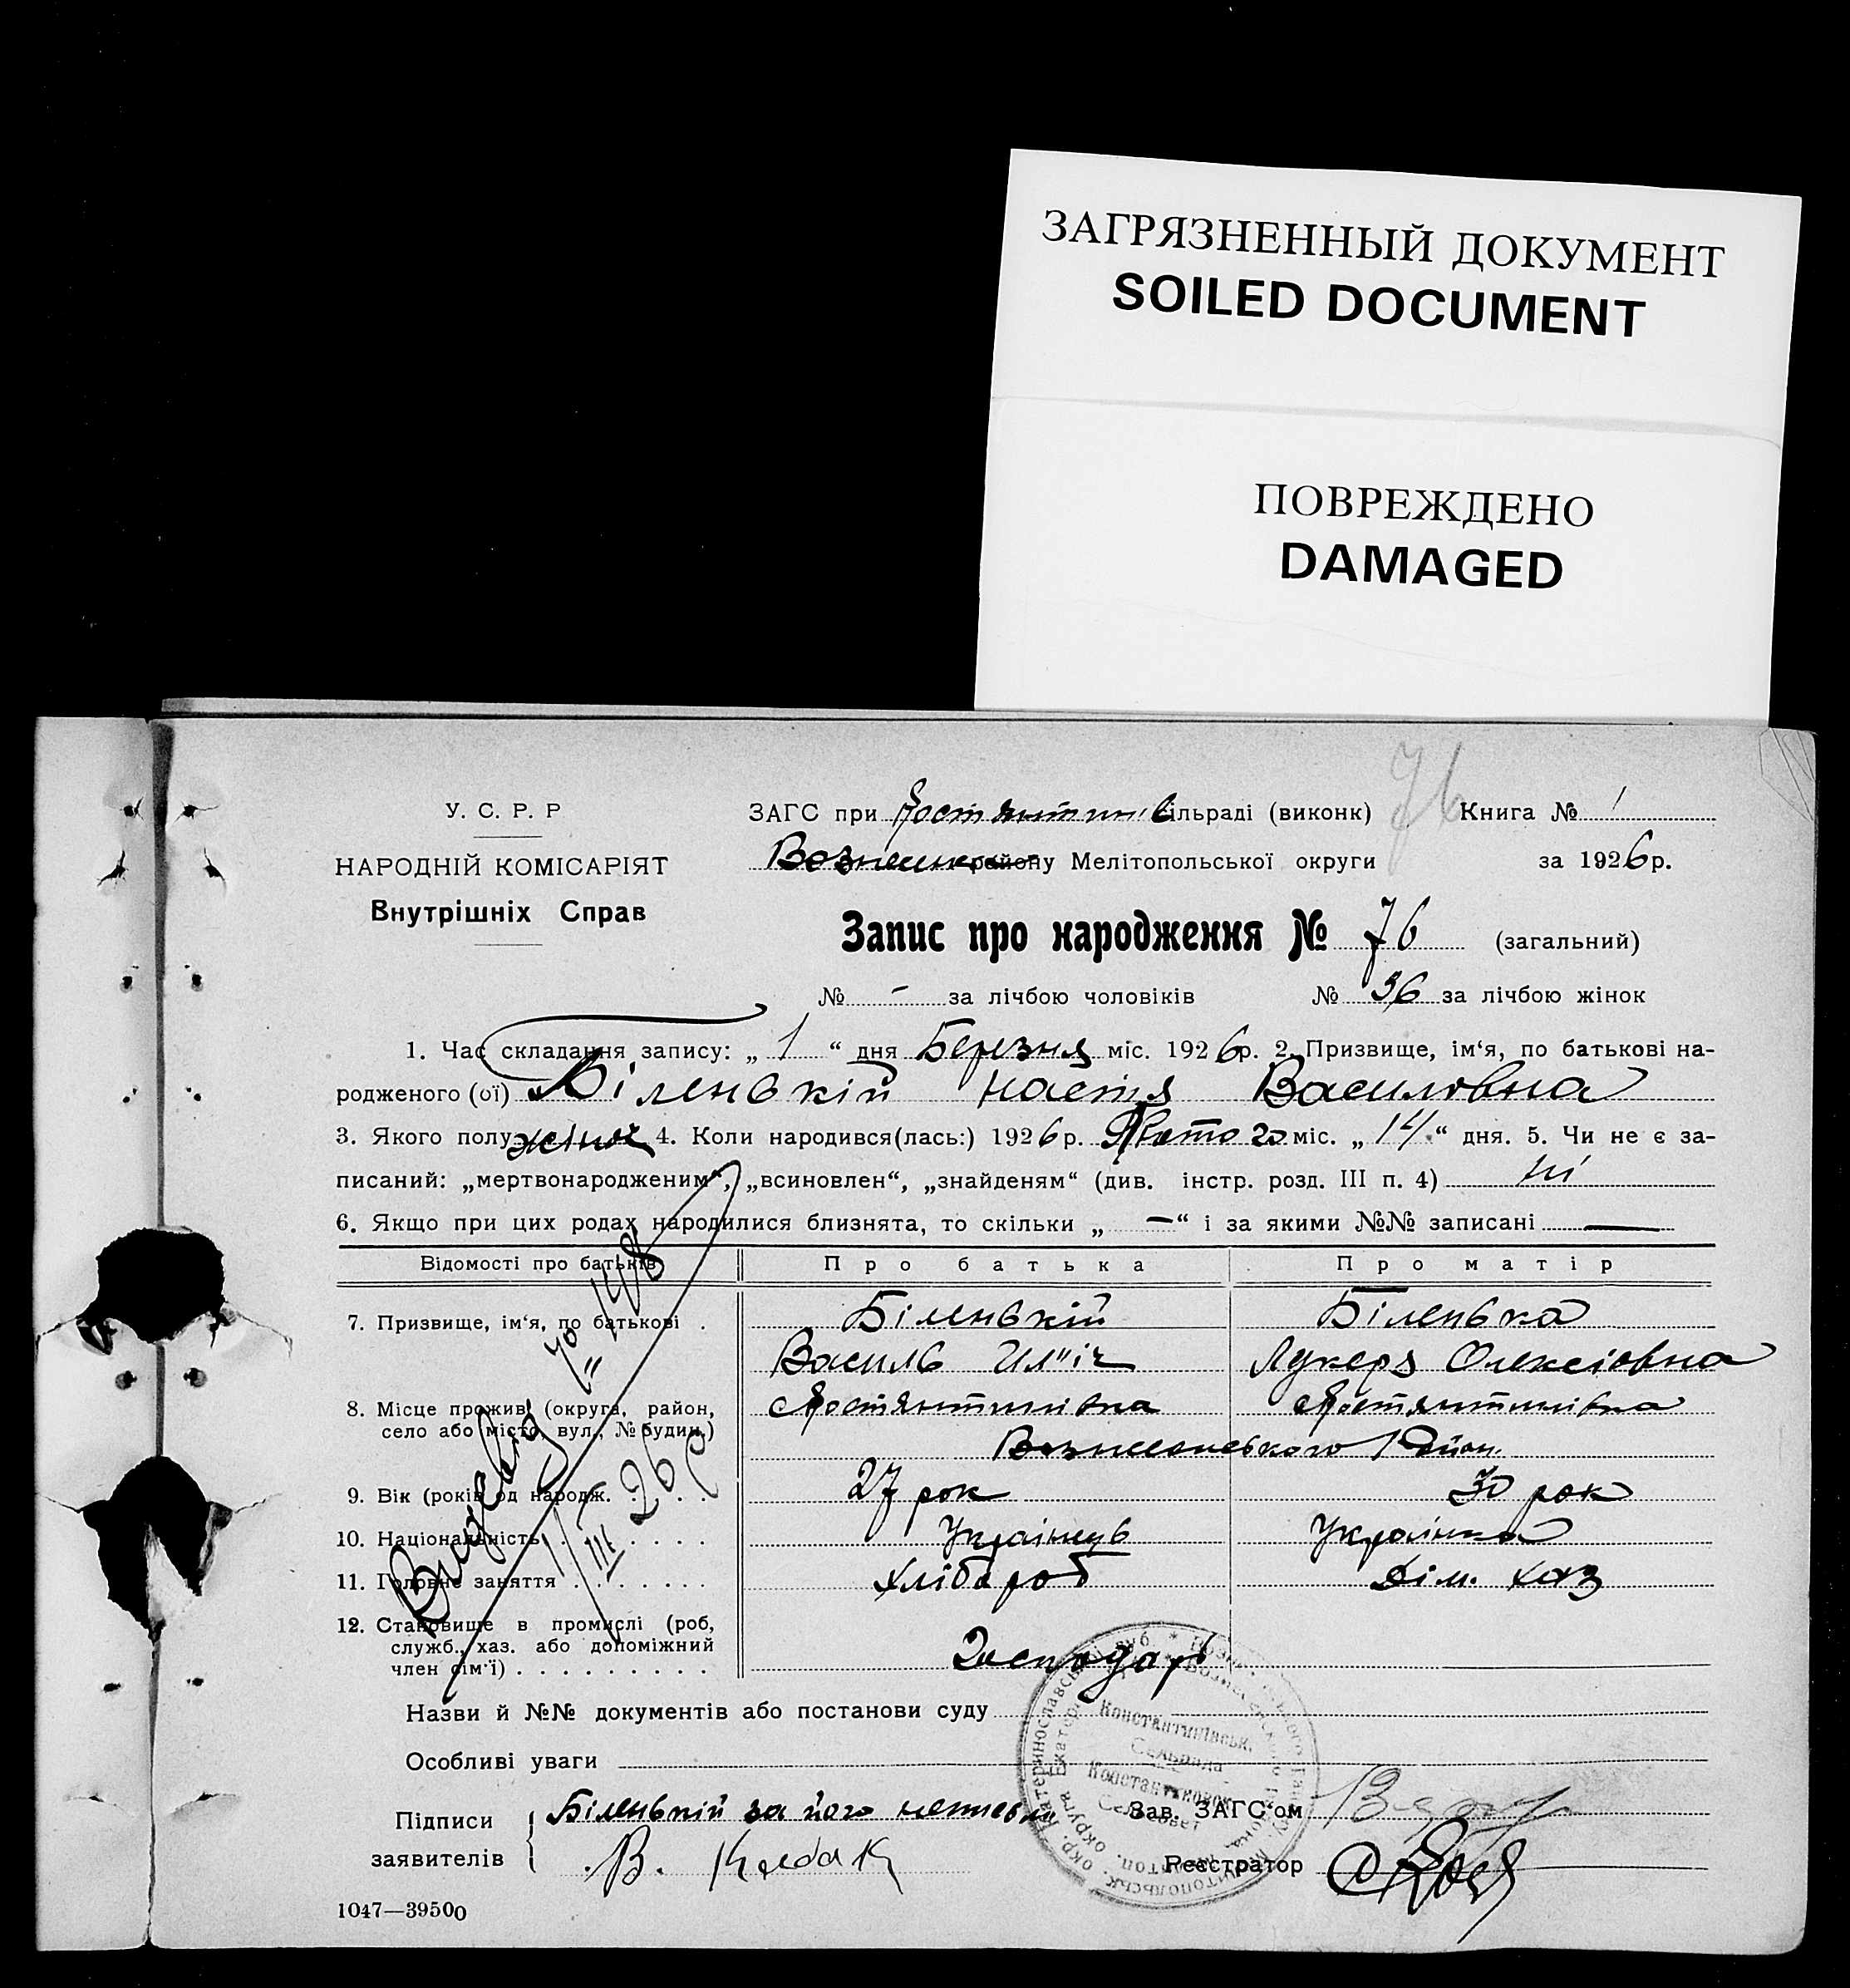 ЗАГРЯЗНЕННЫЙ ДОКУМЕНТ
SOILED DOCUMENT
ПОВРЕЖДЕНО
DAMAGED
76
У. С. Р. Р
НАРОДНІЙ КОМІСАРІЯТ
Внутрішніх Справ
ЗАГС при сільраді (виконк) Книга № 1
району Мелітопольської округи за 1926р.
Запис про народження № 76 (загальний)
№ - за лічбою чоловіків № 36 за лічбою жінок
1. Час складання запису: „ 1 “ дня Березня міс. 1926р. 2. Призвище, ім‘я, по батькові на-
родженого (ої) Біленькій Настя Василовна
3. Якого полу жіноч 4. Коли народився(лась:) 1926р. Лютого міс. „ 14 “ дня. 5. Чи не є за-
писаний: „мертвонародженим“, „всиновлен“, „знайденям“ (див. інстр. розд. III п. 4) ні
6. Якщо при цих родах народилися близнята, то скільки „ — “ і за якими №№ записані —
Відомості про батьків Про батька Про матір
7. Призвище, ім‘я, по батькові . Біленькій Біленька
Василь Ил"іч Лукеря Олексіовна
8. Місце прожив. (округа, район, Костянтинівка Костянтинівка
село або місто, вул., № будин.) Район.
9. Вік (років од народж. . . . 27 рок 30 рок
10. Національність . . . . . . Українець Українка
11. Головне заняття . . . . . . . Хлібороб Дім. хаз
12. Становище в промислі (роб,
служб., хаз. або допоміжний
член сім‘ї) . . . . . . . . . Господарь
Назви й №№ документів або постанови суду
Особливі уваги
Підписи Біленькій за його Зав. ЗАГС‘ом
заявителів В. Реєстратор
1047—39500
Константинівськ.
Сельрада
Константиновск
Сельсовет
III 26 р